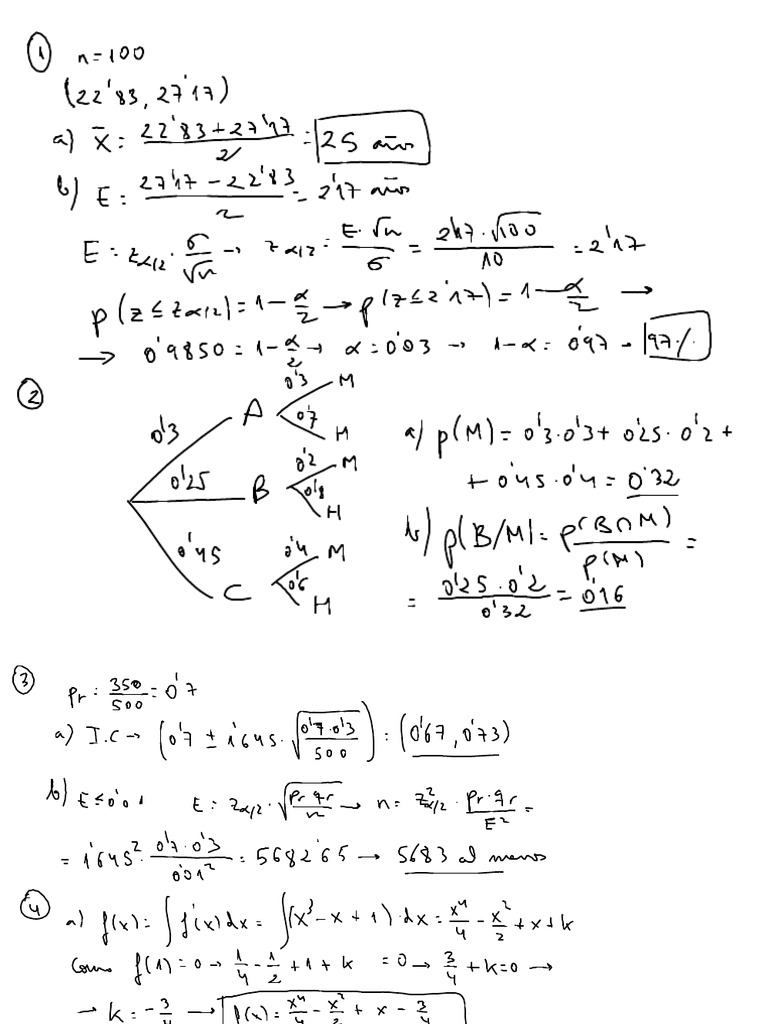 ① n=100
(22'83, 27'17)
a) x̄ = (22'83+27'17)/2 = 25 años
b) E = (27'17 − 22'83)/2 = 2'17 años
E = z_{α/2} · σ/√n → z_{α/2} = E·√n/σ = 2'17·√100/10 = 2'17
p(z ≤ z_{α/2}) = 1 − α/2 → p(z ≤ 2'17) = 1 − α/2 →
→ 0'9850 = 1 − α/2 → α = 0'03 → 1−α = 0'97 → 97%
②
0'3 A 0'3 M 0'7 H
0'25 B 0'2 M 0'8 H
0'45 C 0'4 M 0'6 H
a) p(M) = 0'3·0'3 + 0'25·0'2 +
+ 0'45·0'4 = 0'32
b) p(B/M) = p(B∩M)/p(M) =
= 0'25·0'2/0'32 = 0'16
③ pr = 350/500 = 0'7
a) I.C → (0'7 ± 1'645·√(0'7·0'3/500)) = (0'67, 0'73)
b) E ≤ 0'01 E = z_{α/2}·√(pr·qr/n) → n = z²_{α/2} · pr·qr/E² =
= 1'645² · 0'7·0'3/0'01² = 5682'65 → 5683 al menos
④ a) f(x) = ∫f'(x)dx = ∫(x³ − x + 1)·dx = x⁴/4 − x²/2 + x + k
Como f(1) = 0 → 1/4 − 1/2 + 1 + k = 0 → 3/4 + k = 0 →
→ k = −3/4 → f(x) = x⁴/4 − x²/2 + x − 3/4